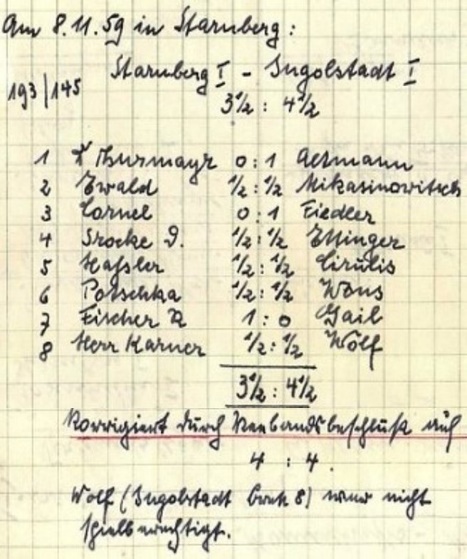 Am 8.11.59 in Starnberg:
Starnberg I - Ingolstadt I
193/145
3½ : 4½
1 Thurmayr 0:1 Altmann
2 Ewald ½:½ Mikasinowitsch
3 Cornel 0:1 Fiedler
4 Srocke D. ½:½ Ettinger
5 Haßler ½:½ Cirulis
6 Potschka ½:½ Wons
7 Fischer R 1:0 Gail
8 Herr Karner ½:½ Wolf
3½ : 4½
Korrigiert durch Verbandsbeschluß auf
4 : 4.
Wolf (Ingolstadt Brett 8) war nicht
spielberechtigt.